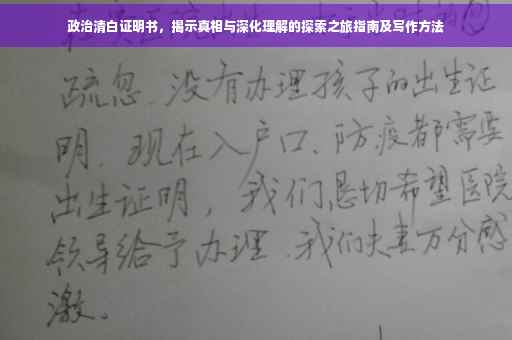 政治清白证明书，揭示真相与深化理解的探索之旅指南及写作方法
疏忽、没有办理孩子的出生证
明、现在入户口、防疫都需要
出生证明，我们恳切希望医院
领导给予办理、我们夫妻万分感
激。